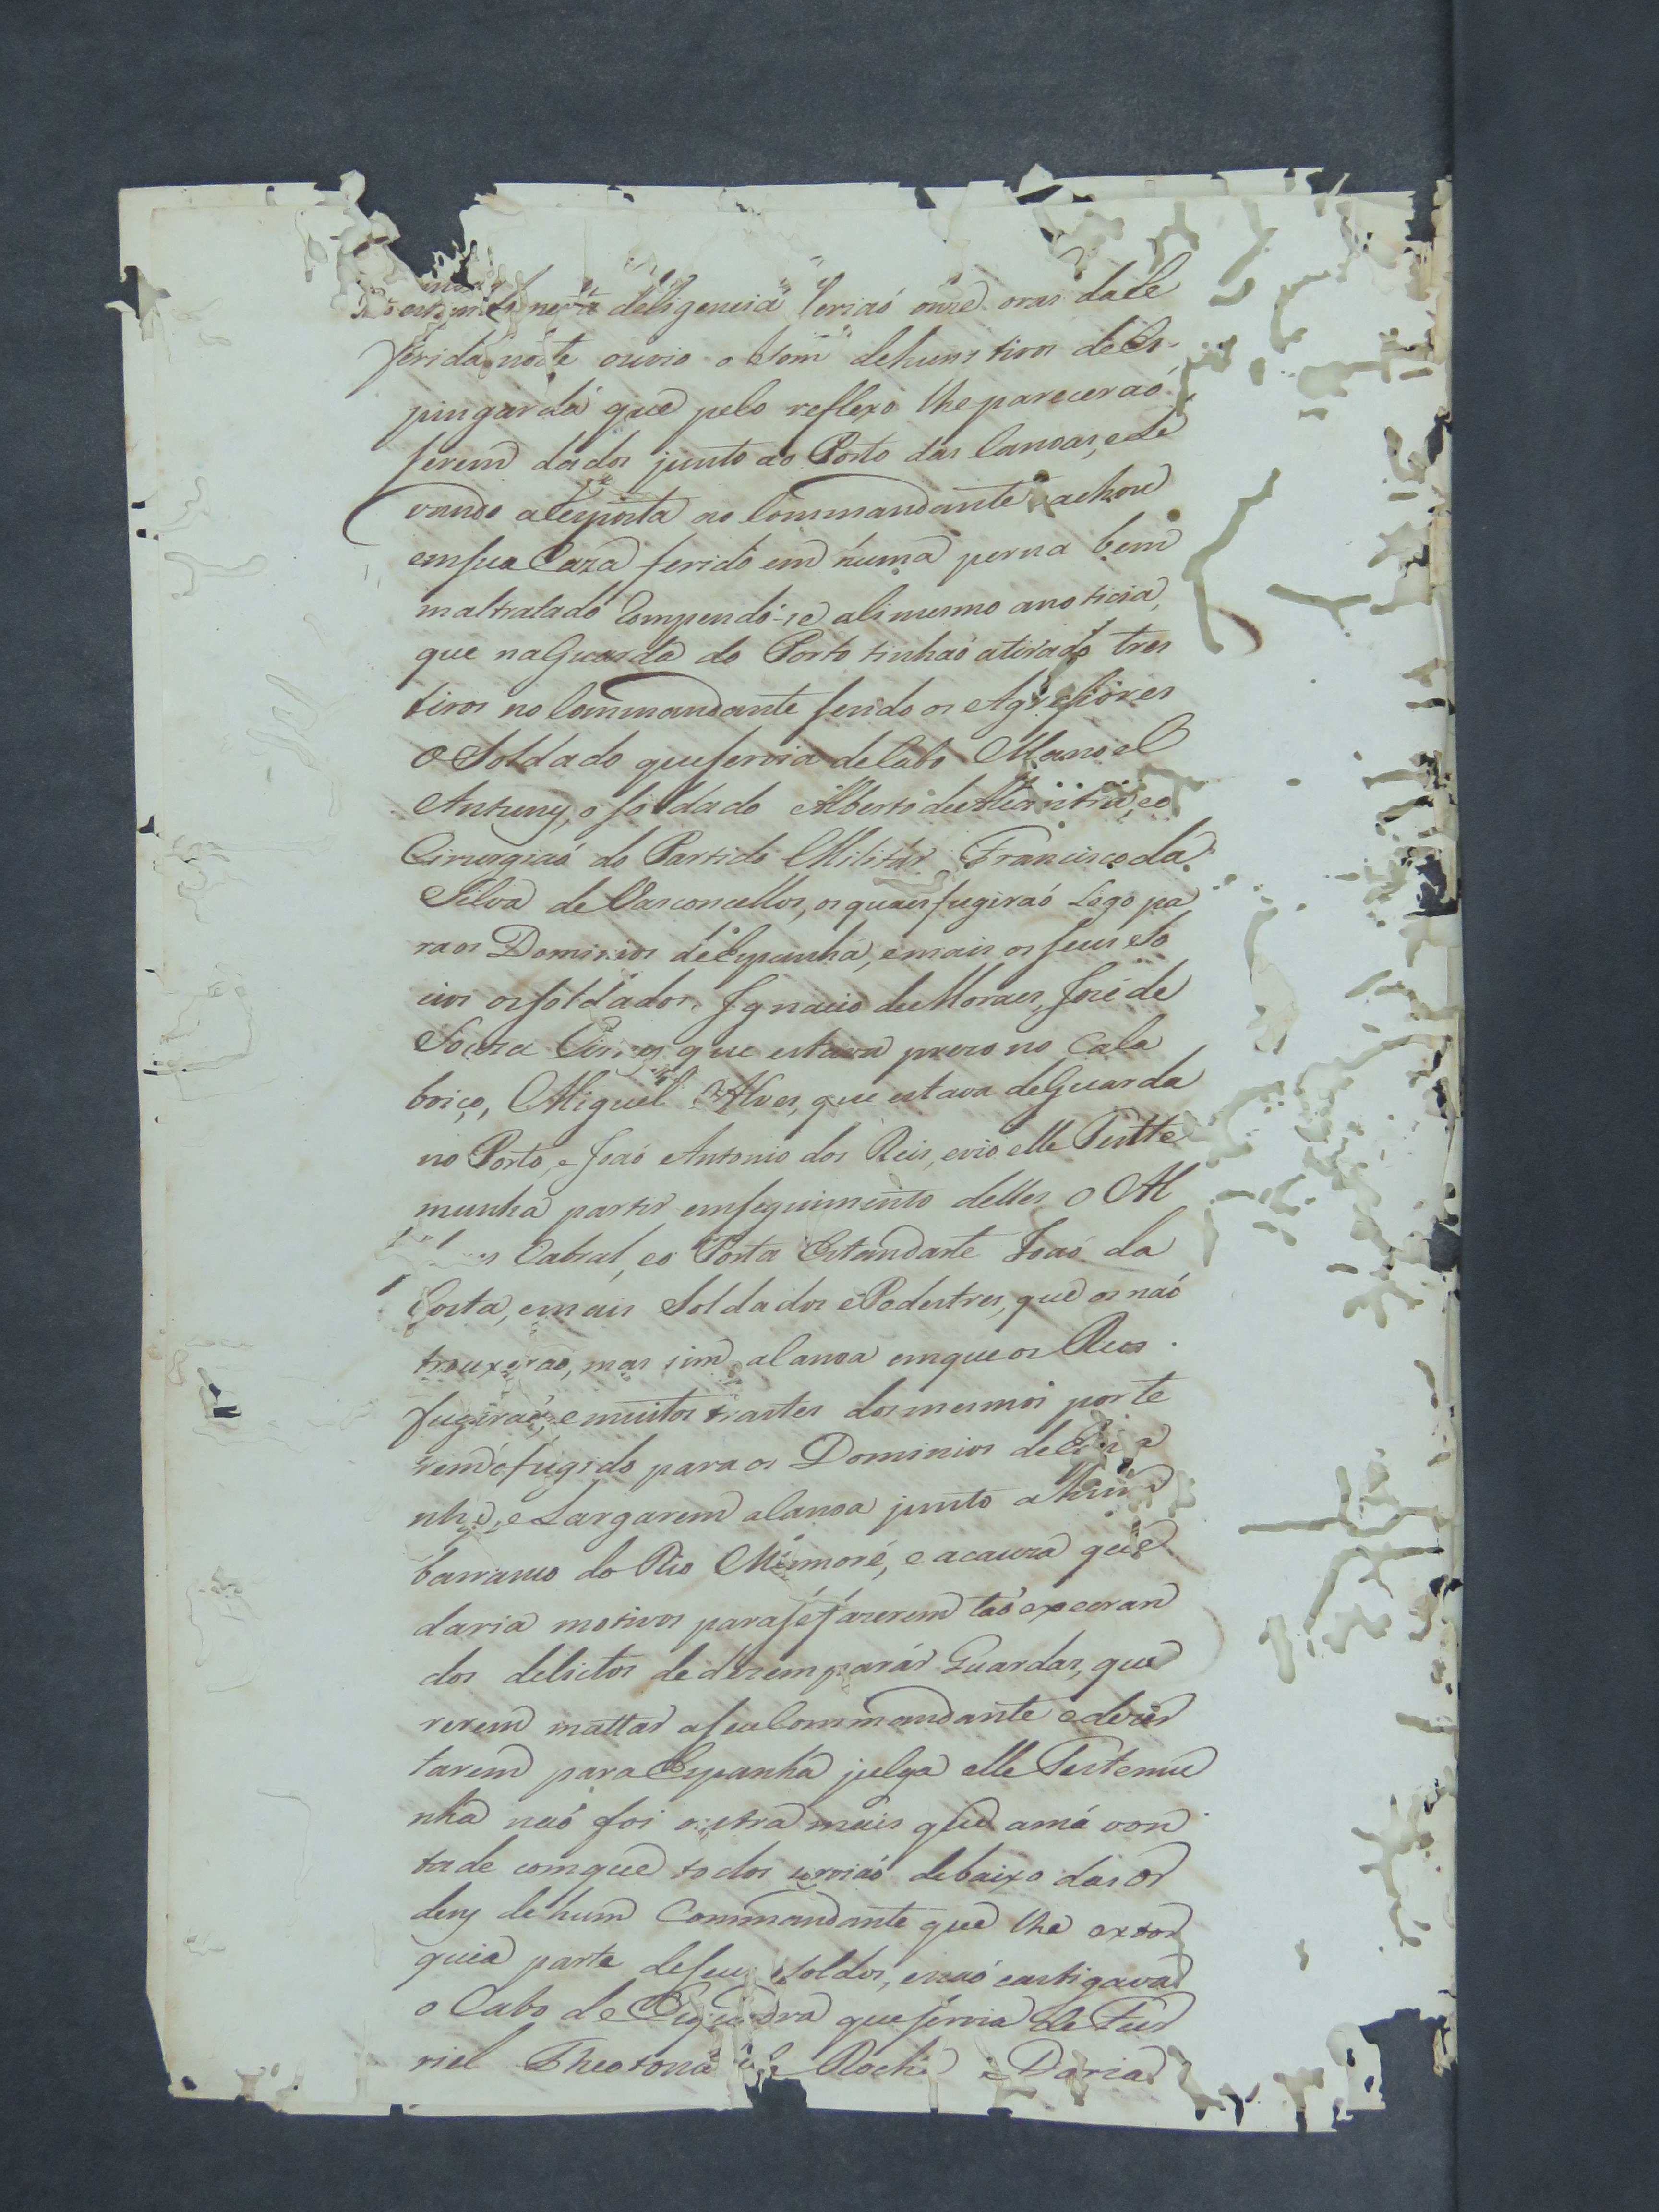 nesta deligencia seriaó onze oras da re
ferida noite ouvio o som de huns tiros de Es-
pingarda que pelo reflexo lhe pareceraó
serem dados junto ao Porto das Canoas, e le
vando a resposta ao Commandante achou
em sua Caza ferido em huma perna bem
maltratado Rompendo-se ali mesmo a noticia,
que na Guarda do Porto tinhaó atirado tres
tiros no Commandante sendo os Agressores
o Soldado que servia de Cabo Manoel
Antunes, o soldado Alberto de e o
Cirurgiaó do Partido Militar Francisco da
Silva de Vasconcellos, os quaes fugiraó Logo pa
ra os Dominios de Espanha, e mais os seus so
cios os soldados Ignacio de Moraes, José de
Souza que estava prezo no Cala
boiço, Miguel Alves, que estava de Guarda
no Porto, e Joaó Antonio dos Reis, e vio elle Teste
munha partir em seguimento delles o Al
Cabral, e o Porta Estandarte Joaó da
Costa, e mais Soldados e Pedestres, que os naó
trouxeraó, mas sim a Canoa em que os Reos
fugiraó, e muitos trastes dos mesmos por te
rem fugido para os Dominios de Espa
nha, e Largarem a Canoa junto a huma
barranco do Rio Mamoré, e a cauza que
daria motivos para se fazerem taó execran
dos delictos de dezemparár Guardas, que
rerem mattar a seu Commandante e dezer
tarem para Espanha julga elle Testemu
nha naó foi outra mais que a má von
tade com que todos serviaó debaixo das or
dens de hum Commandante que lhe extor
quia parte de seus soldos, e naó castigava
o Cabo de Esquadra que servia de Fur
riel Theotonio da Rocha e Doria